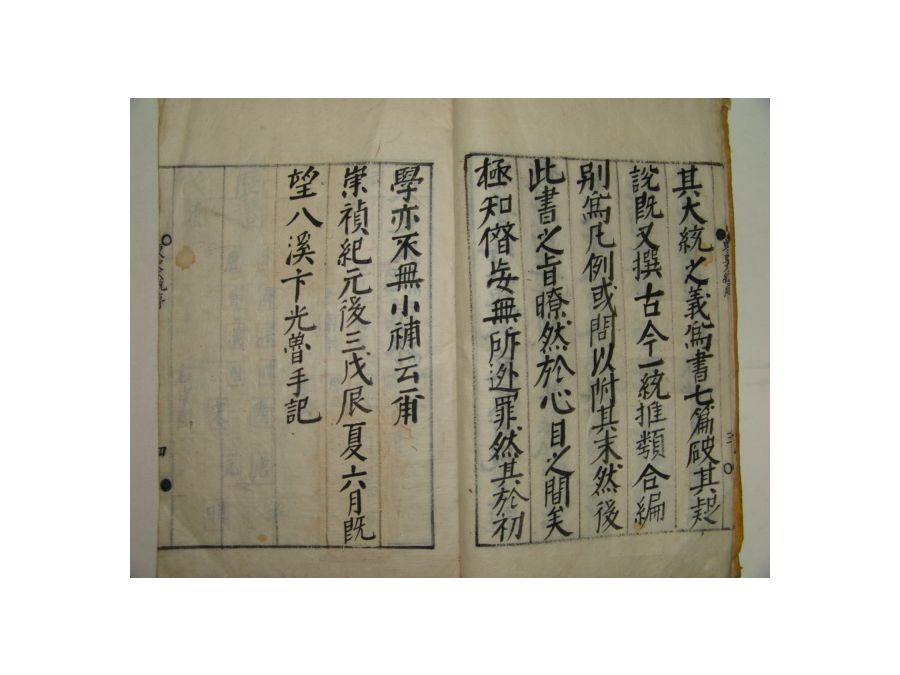 其大統之義爲書七篇破其起
說旣又撰古今一統推類合編
別爲凡例或問以附其末然後
此書之旨暸然於心目之間矣
極知僭妄無所逃罪然其於初
學亦不無小補云爾
崇禎紀元後三戊辰夏六月旣
望八溪卞光魯手記
三
四